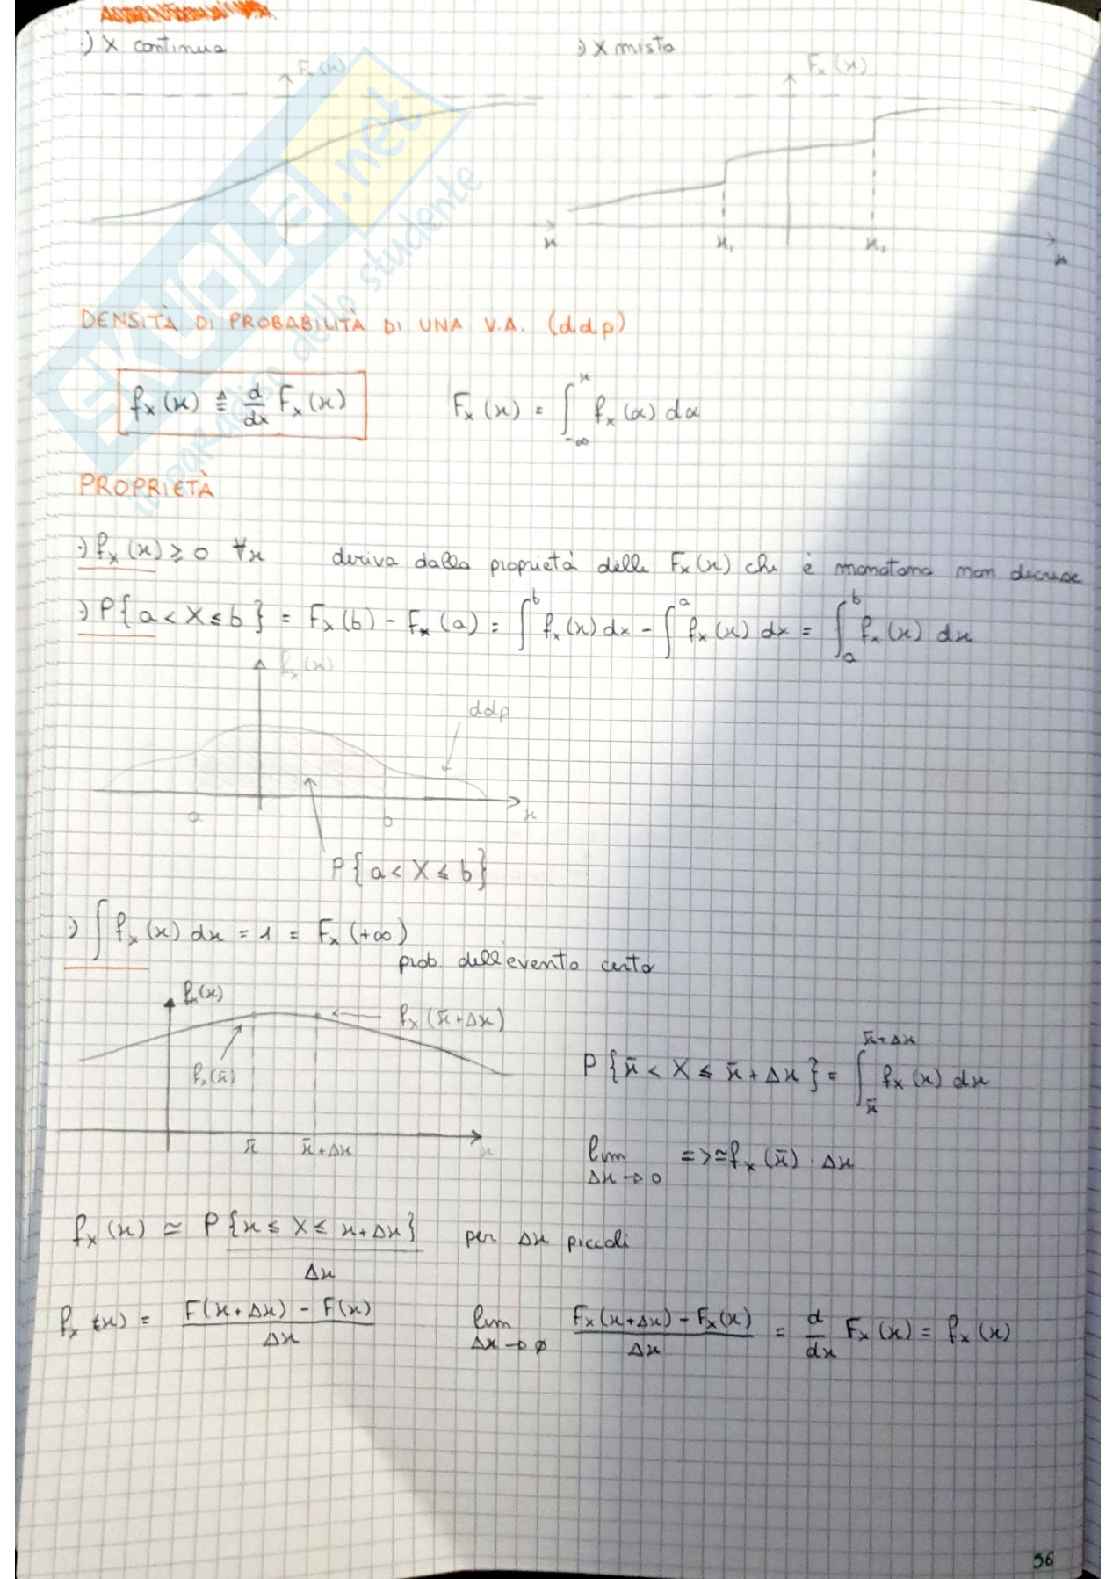 ·) X continua
·) X mista
Fₓ(x)
Fₓ(x)
x
x₁
x₂
x
SKUOLA.net
IL PARADISO dello studente
DENSITÀ DI PROBABILITÀ DI UNA V.A. (ddp)
fₓ(x) ≜ d/dx Fₓ(x)
Fₓ(x) = ∫_{-∞}^{x} fₓ(α) dα
PROPRIETÀ
·) fₓ(x) ≥ 0 ∀x deriva dalla proprietà della Fₓ(x) che è monotona non decresc
·) P{a < X ≤ b} = Fₓ(b) - Fₓ(a) = ∫^{b} fₓ(x) dx - ∫^{a} fₓ(x) dx = ∫_{a}^{b} fₓ(x) dx
fₓ(x)
ddp
a
b
x
P{a < X ≤ b}
·) ∫ fₓ(x) dx = 1 = Fₓ(+∞)
prob. dell'evento certo
fₓ(x)
fₓ(x̄+Δx)
fₓ(x̄)
x̄
x̄+Δx
x
P{x̄ < X ≤ x̄+Δx} = ∫_{x̄}^{x̄+Δx} fₓ(x) dx
lim Δx→0 => ≃ fₓ(x̄) · Δx
fₓ(x) ≃ P{x ≤ X ≤ x+Δx} / Δx per Δx piccoli
fₓ(x) = F(x+Δx) - F(x) / Δx
lim Δx→0 Fₓ(x+Δx) - Fₓ(x) / Δx = d/dx Fₓ(x) = fₓ(x)
56